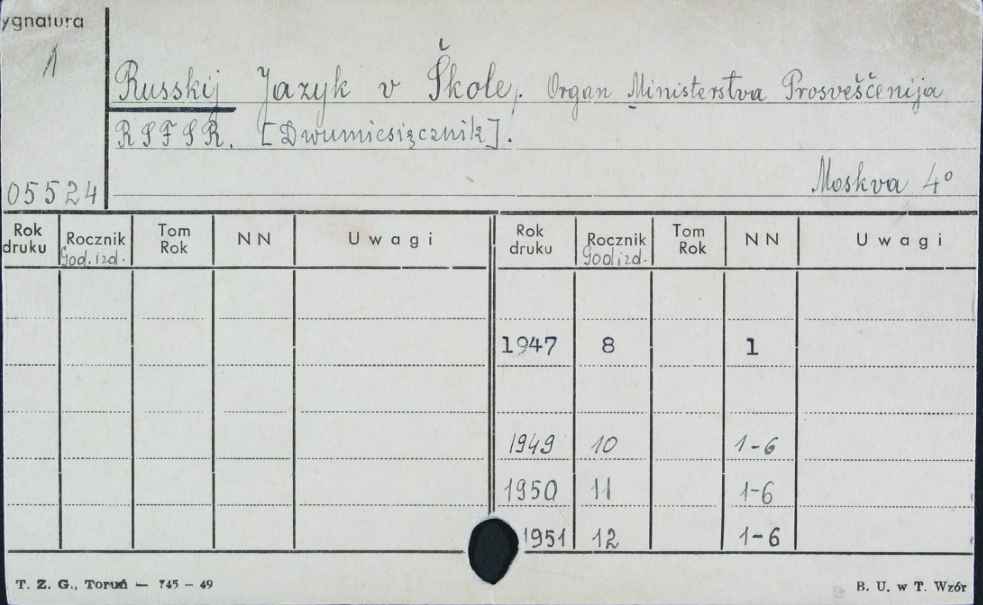 ygnatura
1
Russkij Jazyk v Škole, Organ Ministerstva Prosveščenija
RSFSR. [Dwumiesięcznik].
05524
Moskva 4°
Rok druku Rocznik God. izd. Tom Rok NN Uwagi Rok druku Rocznik God izd. Tom Rok NN Uwagi
1947 8 1
1949 10 1-6
1950 11 1-6
1951 12 1-6
T. Z. G., Toruń — 745 - 49
B. U. w T. Wzór